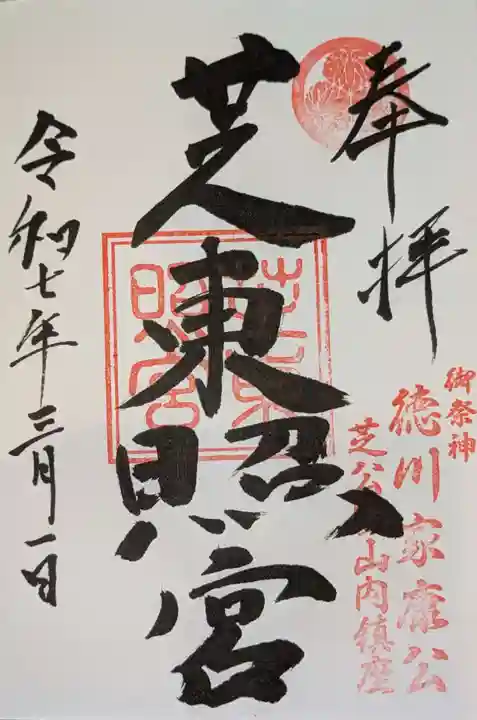 奉拝
御祭神
徳川家康公
芝公園山内鎮座
芝東照宮
芝東照宮
令和七年三月一日